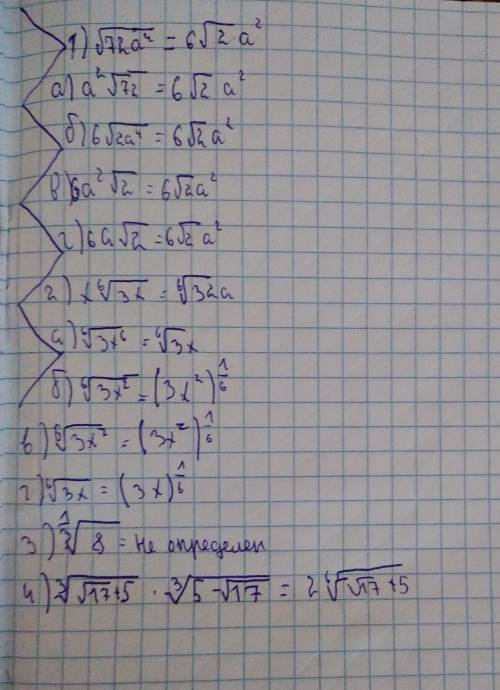 1) √72a⁴ = 6√2 a²
а) a²√72 = 6√2 a²
б) 6√2a⁴ = 6√2 a²
в) 6a²√2 = 6√2a²
г) 6a√2 = 6√2 a²
2) x⁶√3x = ⁶√32a
а) ⁶√3x⁶ = ⁶√3x
б) ⁶√3x² = (3x²)^1/6
в) ⁶√3x² = (3x²)^1/6
г) ⁶√3x = (3x)^1/6
3) ^1/3√8 = Не определен
4) ³√√17+5 · ³√5-√17 = 2